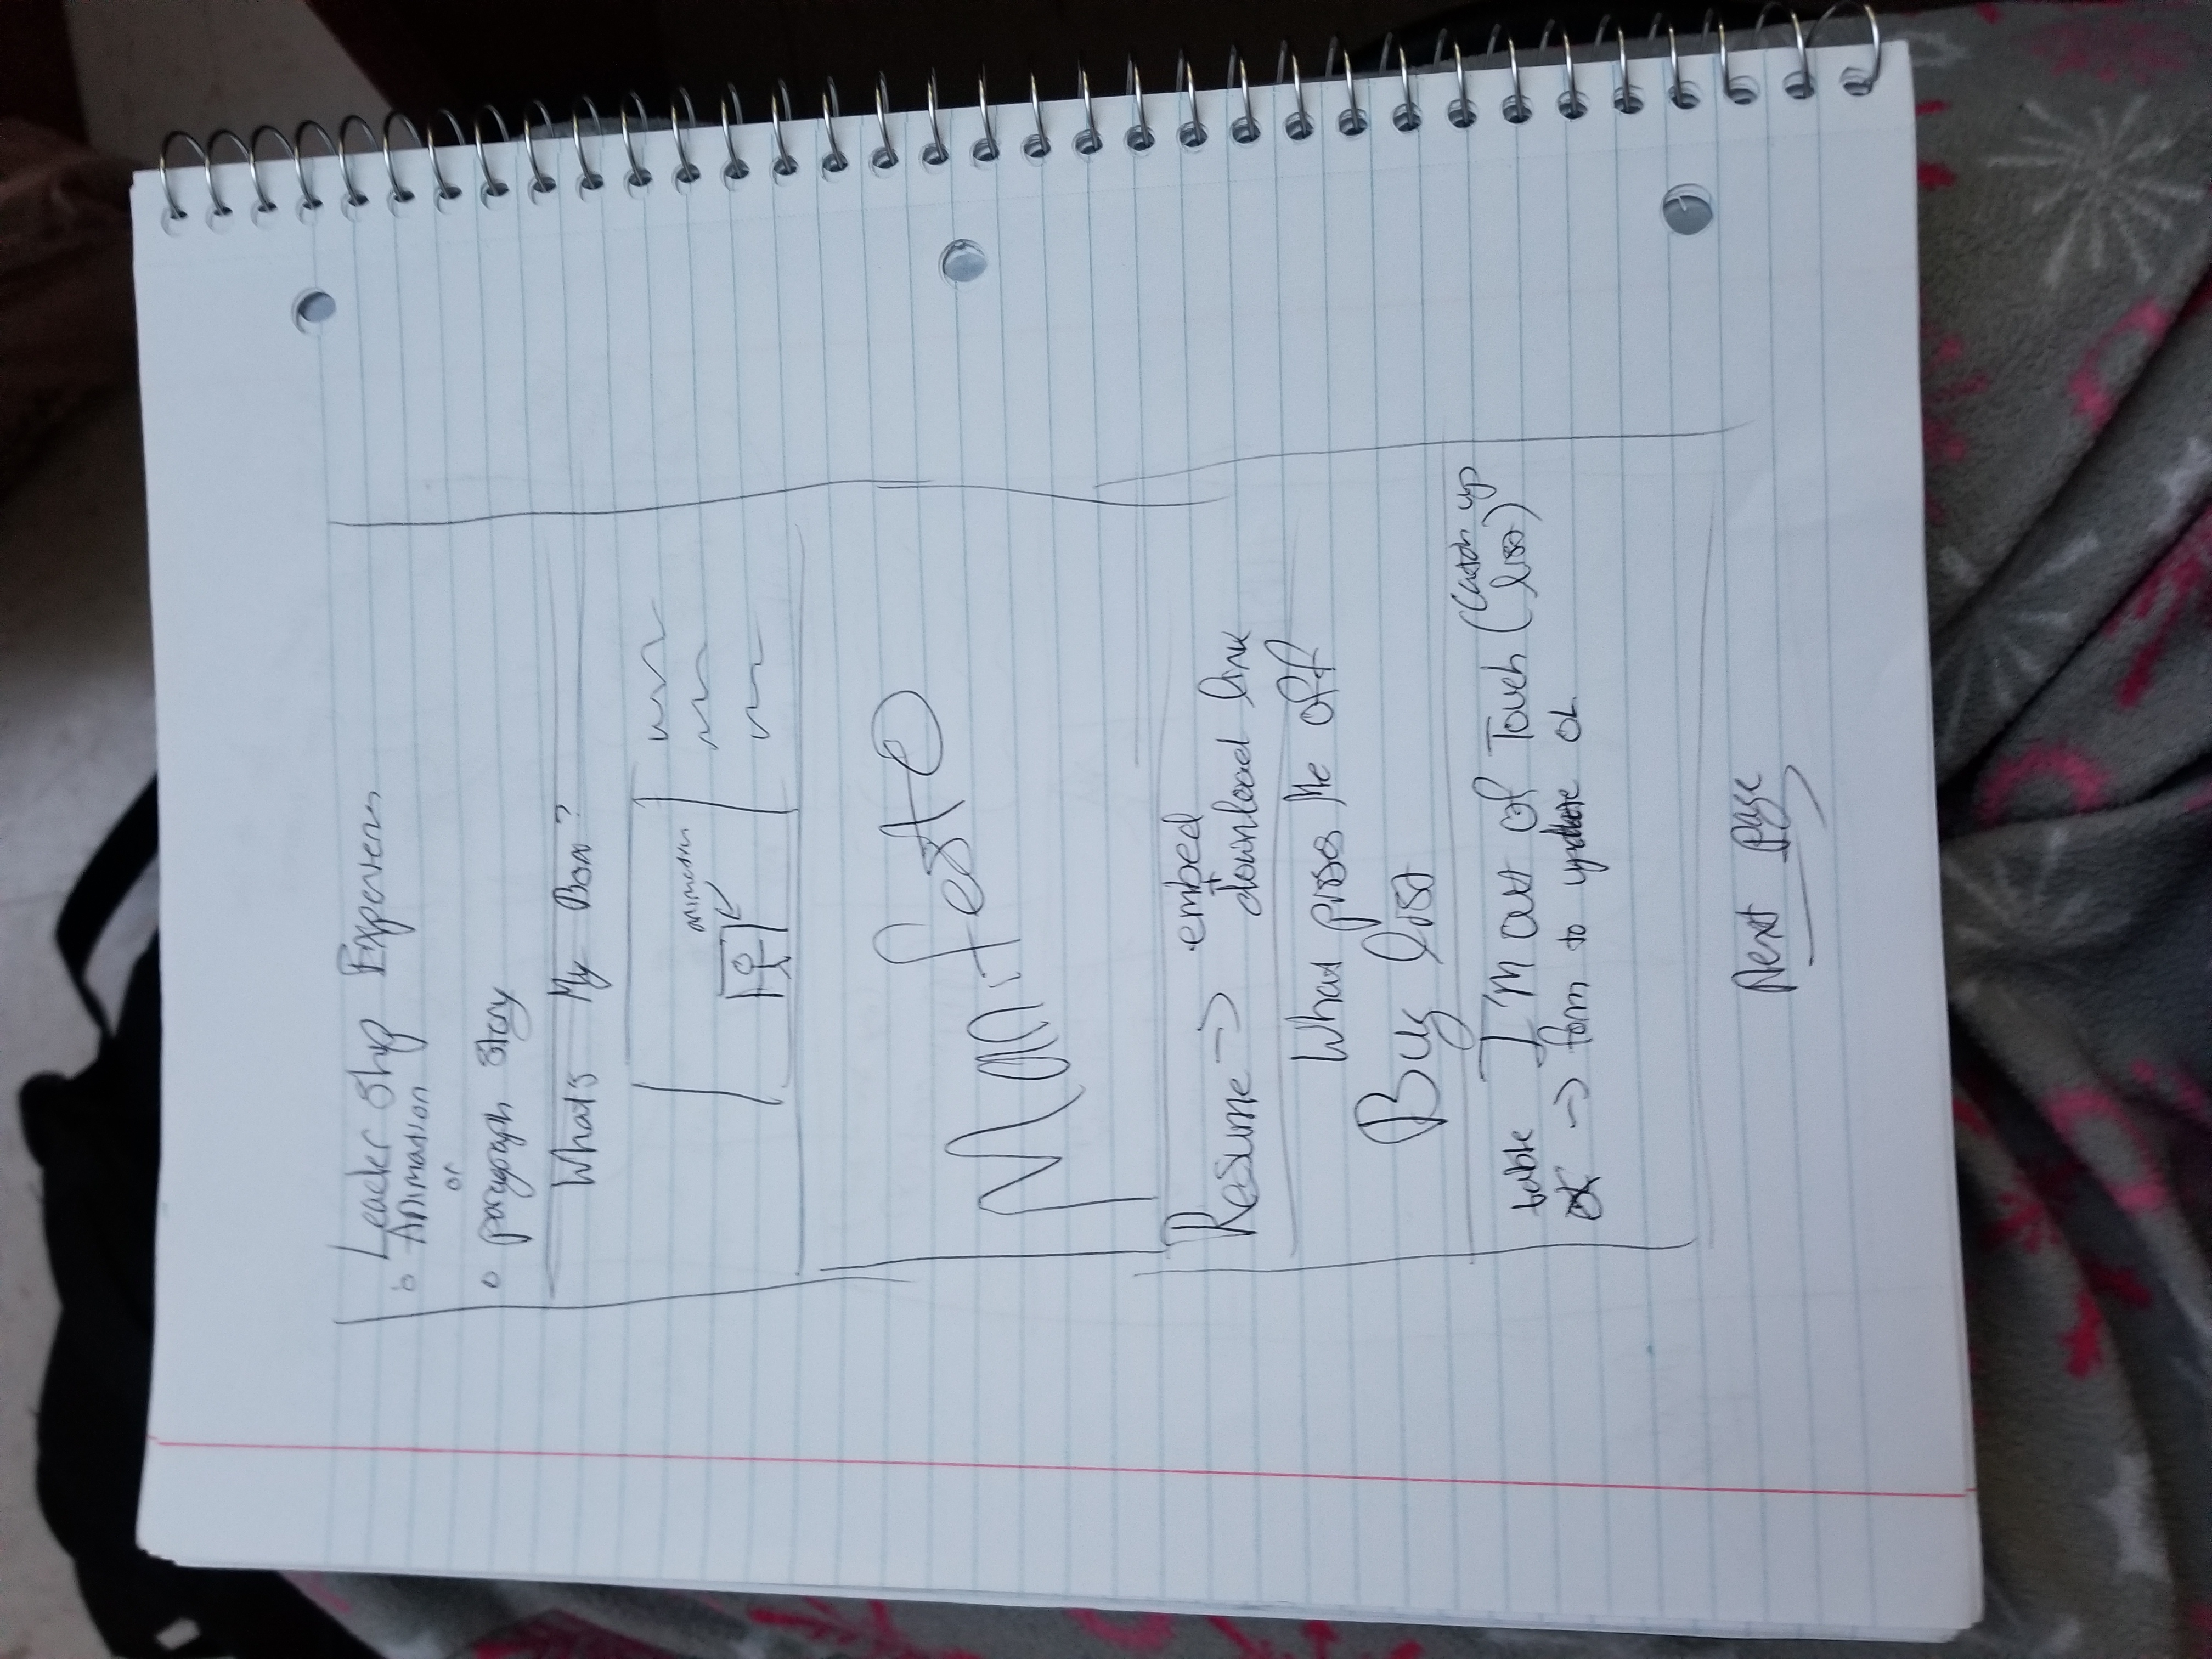 Leader Ship
Animation
or
paragraph story
What's My Box?
animation
Manifesto
Resume -> embed
+
download link
What pisses Me off
Bug list
table I'm out of Touch (Catch up list)
-> form to update
Next page